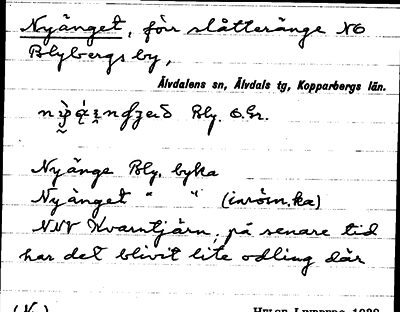 Nyänget, förr slåtteränge NO
Blybergs by,
Älvdalens sn, Älvdals tg, Kopparbergs län.
Bly. O.Gr.
Nyänge Bly. byka
Nyänget " " (inröm.ka)
NNV Kvarntjärn, på senare tid
har det blivit lite odling där